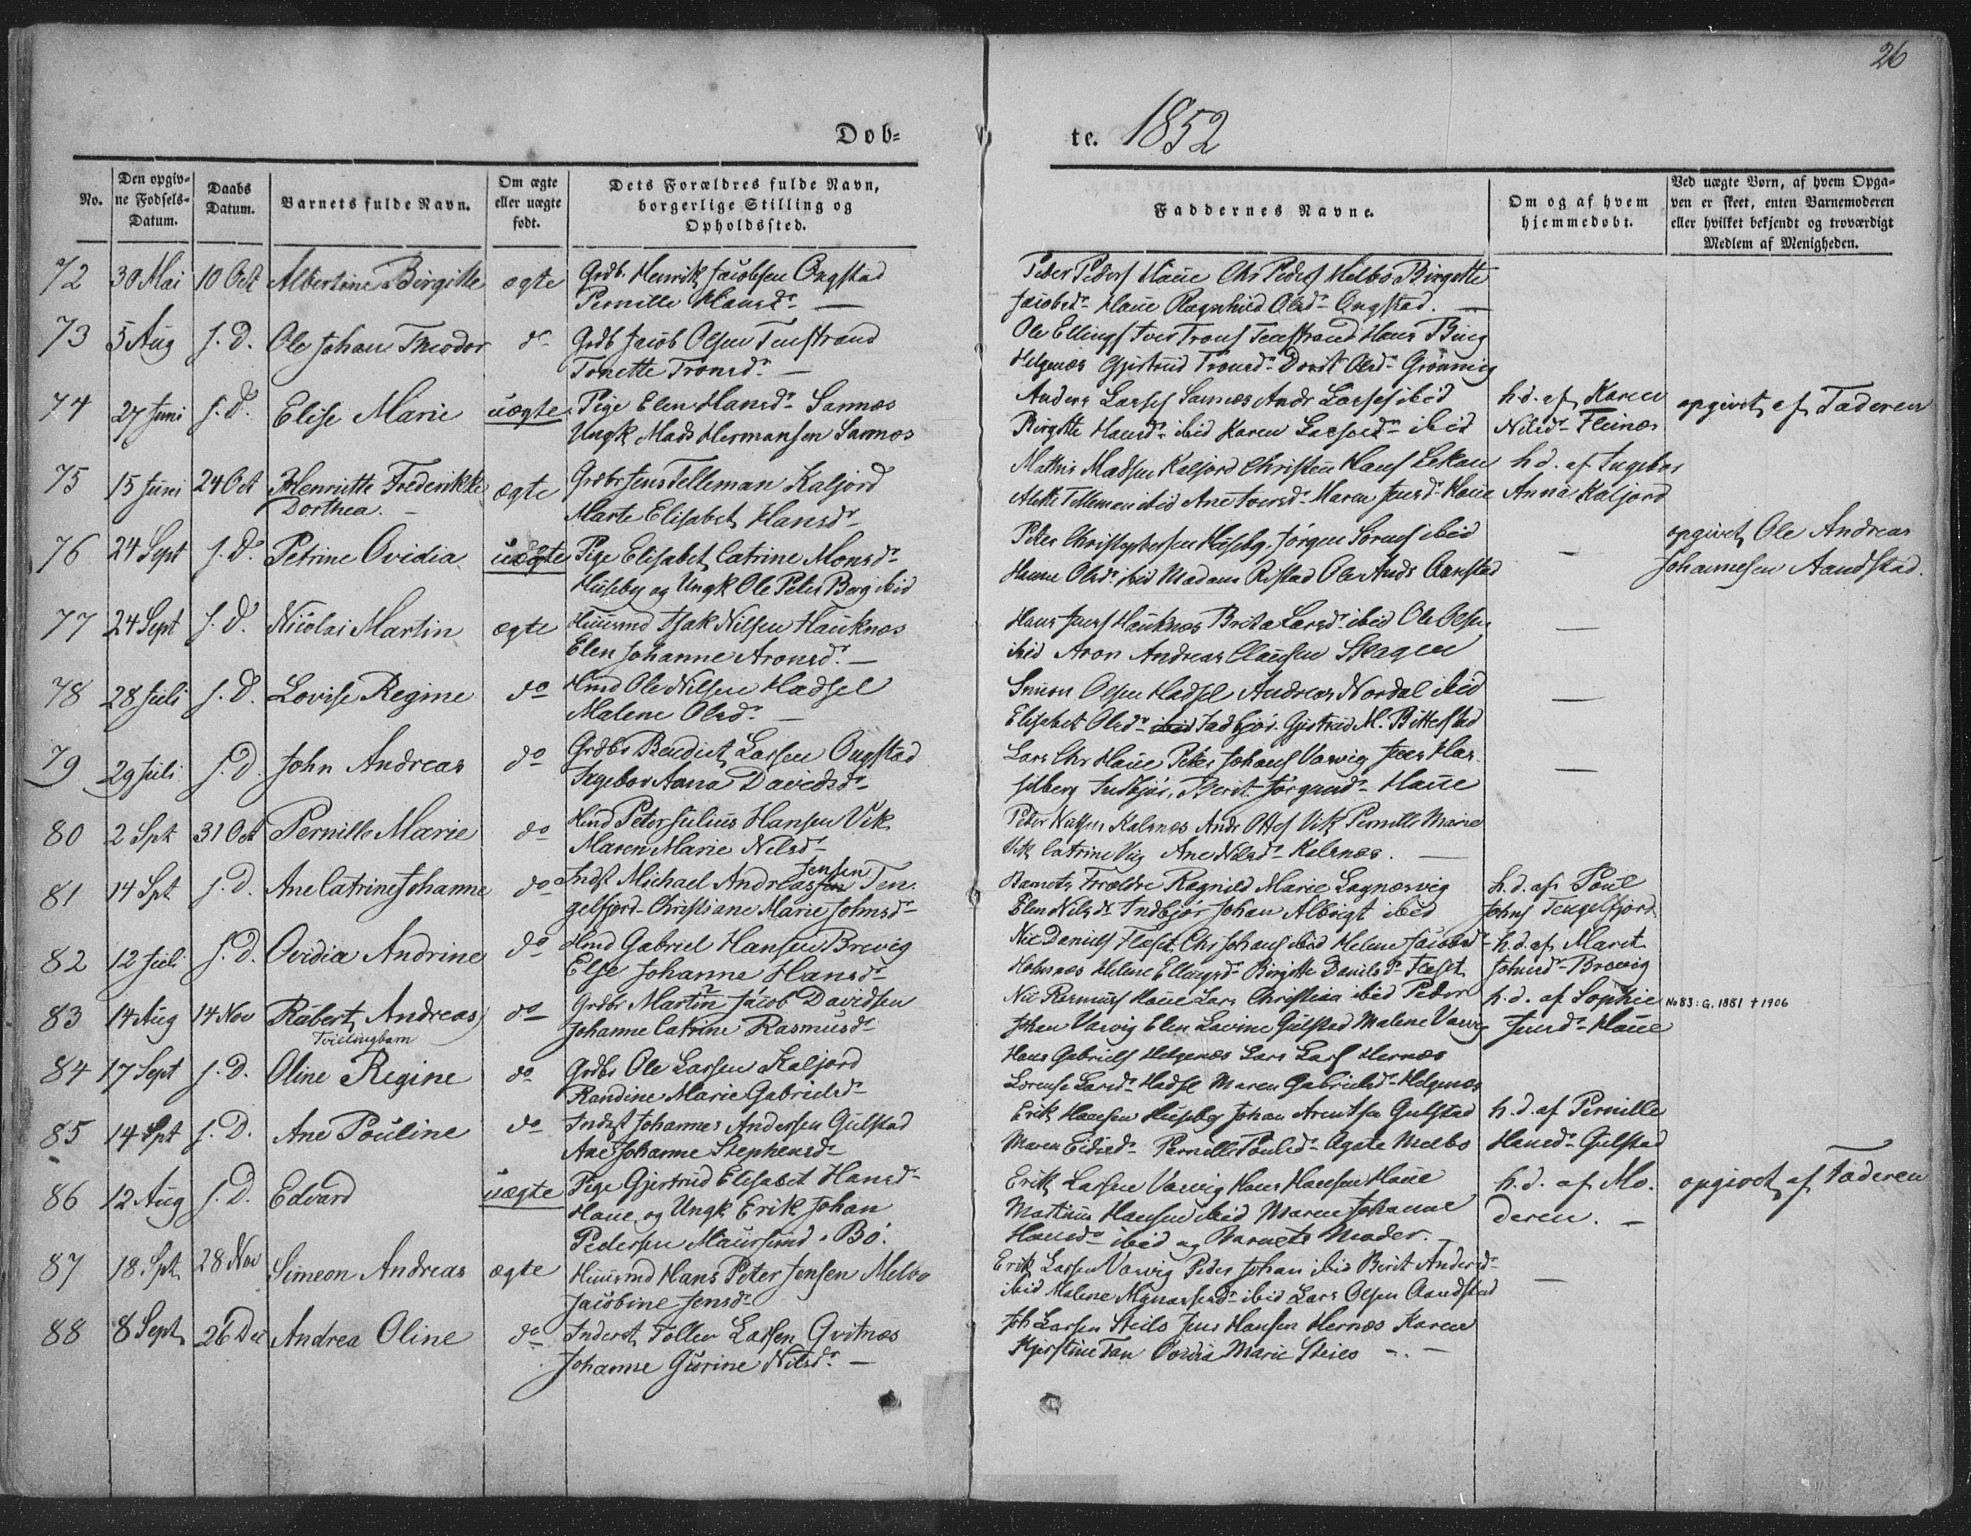 26
Døb-
te. 1852
No.
Den opgiv-
ne Fødsels-
Datum.
Daabs
Datum.
Barnets fulde Navn.
Om ægte
eller uægte
født.
Dets Forældres fulde Navn,
borgerlige Stilling og
Opholdssted.
Faddernes Navne.
Om og af hvem
hjemmedøbt.
Ved uægte Børn, af hvem Opga-
ven er skeet, enten Barnemoderen
eller hvilket bekjendt og troværdigt
Medlem af Menigheden.
72 30 Mai 10 Oct Albertine Birgitte ægte Grdb. Henrik Jacobsen Ongstad
Pernille Hansdr —
Peder Peders Haue Chr Peders Melbo Birgitte
Jacobsdr Haue Ragnhild Olsdr Ongstad. —
73 5 Aug s. D. Ole Johan Theodor do Grdb Jacob Olsen Tenstrand
Tonette Tronsdr —
Ole Ellings Iver Trons Tenstrand Hans Bing
Helgenæs Gjertrud Tronsdr Dordt Olsdr Grønning
74 27 Juni s. D. Elise Marie uægte Pige Elen Hansdr Sannæs
Ungk Mads Hermansen Sannæs
Anders Larses Sannæs Andr Larses ibid
Birgitte Hansdr ibid Karen Larsdr ibid
h. d. af Karen
Nilsdr Fleinæs
opgivet af Faderen
75 15 Juni 24 Oct Henriette Frederikke
Dorthea. —
ægte Grdbr Jens Telleman Kaljord
Marte Elisabet Hansdr
Mathis Madsen Kaljord Christen Hans Lekan
Alette Telleman ibid Ane Iversdr Maren Jensdr Haue
h. d. af Ingebor
Anna Kaljord
76 24 Sept s. D. Petrine Ovidia uægte Pige Elisabet Catrine Monsdr
Huseby og Ungk Ole Peter Borg ibid
Peter Christophersen Huseby. Jørgen Sørens ibid
Hanne Olsdr ibid Madam Ristad Ole Ands Aanstad
—
opgivet Ole Andreas
Johannesen Aandstad.
77 24 Sept s. D. Nicolai Martin ægte Huusmd Isak Nilsen Hauknæs
Elen Johanne Aronsdr. —
Hans Jens Hauknæs Brita Larsdr ibid Ole Olsen
ibid Aron Andreas Clausen Skagen
—
78 28 Juli s. D. Lovise Regine do Hmd Ole Nilsen Hadsel
Malene Olsdr —
Simon Olsen Hadsel Andreas Nordal ibid
Elisabet Olsdr ibid Indbjør. Gjertrud M. Bitterstad
—
79 29 Juli s. D. John Andreas do Grdbr Bendict Larsen Ongstad
Ingebor Anna Davidsdr
Lars Chr Haue Peter Johans Varvig Jens Has-
selberg Indbjør, Berit Jørgensdr Haue
—
80 2 Spt 31 Oct Pernille Marie do Hmd Peter Julius Hansen Vik
Maren Marie Nilsdr
Peter Kalsnæs Andr Ottes Vik Pernille Marie
Vik Catrine Vig Ane Nilsdr Kalsnæs. —
81 14 Spt s. D. Ane Catrine Johanne do Indst Michael Andreas Jensen Ten-
gelfjord. Christiane Marie Johnsdr
Barnets Forældre Ragnild Marie Lagnæsvig
Elen Nilsdr Indbjør Johan Albrigt ibid
h. d. af Poul
Johns Tengelfjord
82 12 Juli s. D. Ovidia Andrine do Hmd Gabriel Hansen Brevig
Else Johanne Hansdr
Nic Daniels Fleset Chr Johans ibid Helene Jacobsdr
Holmnæs Helene Ellingsdr Birgitte Danielsdr Fleset
h. d. af Marit
Johnsdr Brevig
83 14 Aug 14 Nov Robert Andreas
Tvillingbarn
do Grdbr Martin Jacob Davidsen
Johanne Catrine Rasmusdr
Nic Rasmus Haue Lars Christian ibid Peder
Johan Varvig Elen Lavine Gulstad Malene Varvig
h. d. af Sophie
Jensdr Haue
No 83: G. 1881 † 1906
84 17 Sept s. D. Oline Regine do Grdbr Ole Larsen Kaljord
Randine Marie Gabrielsdr
Hans Gabriels Helgenæs Lars Lars Hernæs
Lorense Larsdr Hadsel Maren Gabrielsdr Helgenæs
85 14 Spt s. D. Ane Pouline do Indst Johannes Andersen Gulstad
Ane Johanne Stephensdr
Erik Hansen Huseby Johan Arentsen Gulstad
Maren Eidisdr Pernille Poulsdr Agate Melbo
h. d. af Pernille
Hansdr Gulstad
86 12 Aug s. D. Edvard uægte Pige Gjertrud Elisabet Hansdr
Haue og Ungk Erik Johan
Pedersen Maursund i Bø.
Erik Larsen Varvig Hans Hansen Haue
Martinus Hansen ibid Maren Johanne
Hansdr ibid og Barnets Moder. —
h. d. af Mo-
deren. —
opgivet af Faderen
87 18 Spt 28 Nov Simeon Andreas ægte Huusmd Hans Peter Jensen Melbo
Jacobine Jensdr
Erik Larsen Varvig Peder Johan ibid Berit Andersdr
ibid Malene ibid Lars Olsen Aandstad
—
88 8 Sept 26 Dec Andrea Oline do Inderst Tollev Larsen Gvitnæs
Johanne Gurine Nilsdr —
Joh Larsen Steilo Jens Hansen Hernæs Karen
Kjerstine Fan Ovidia Marie Steilo —